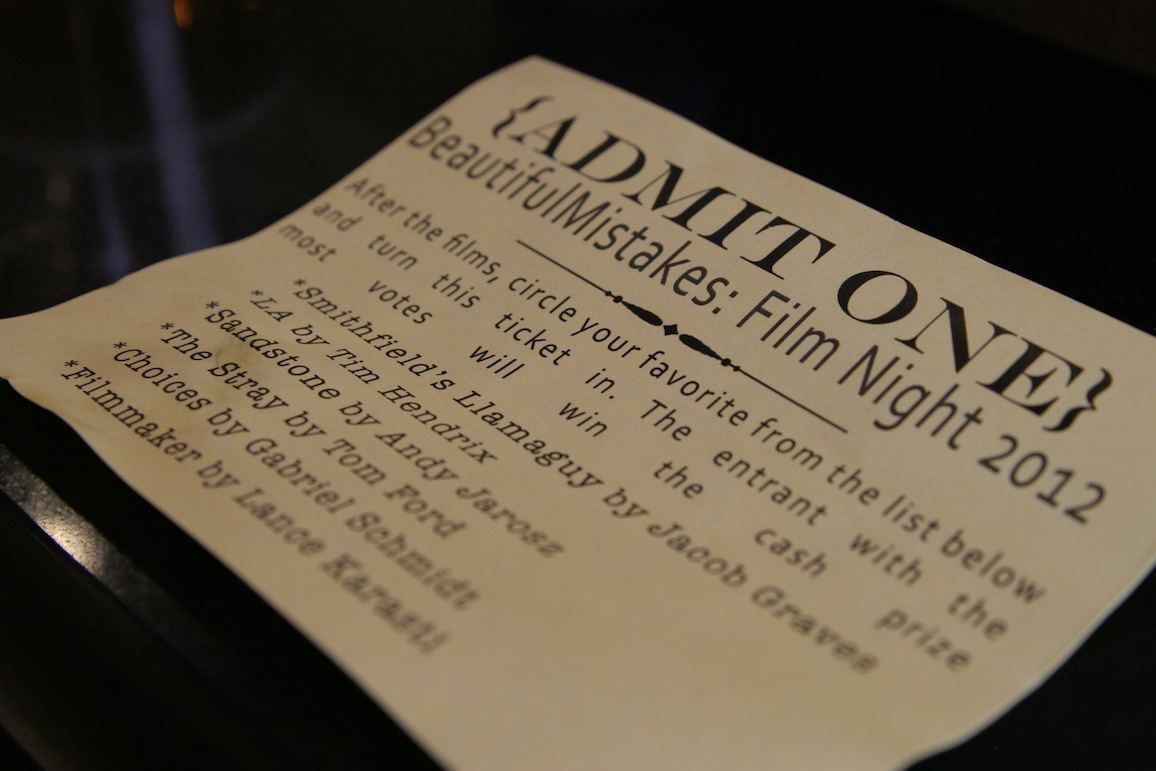 {ADMIT ONE}
BeautifulMistakes: Film Night 2012
After the films, circle your favorite from the list below
and turn this ticket in. The entrant with the
most votes will win the cash prize
*Smithfield's Llamaguy by Jacob Graves
*LA by Tim Hendrix
*Sandstone by Andy Jarosz
*The Stray by Tom Ford
*Choices by Gabriel Schmidt
*Filmmaker by Lance Karasti